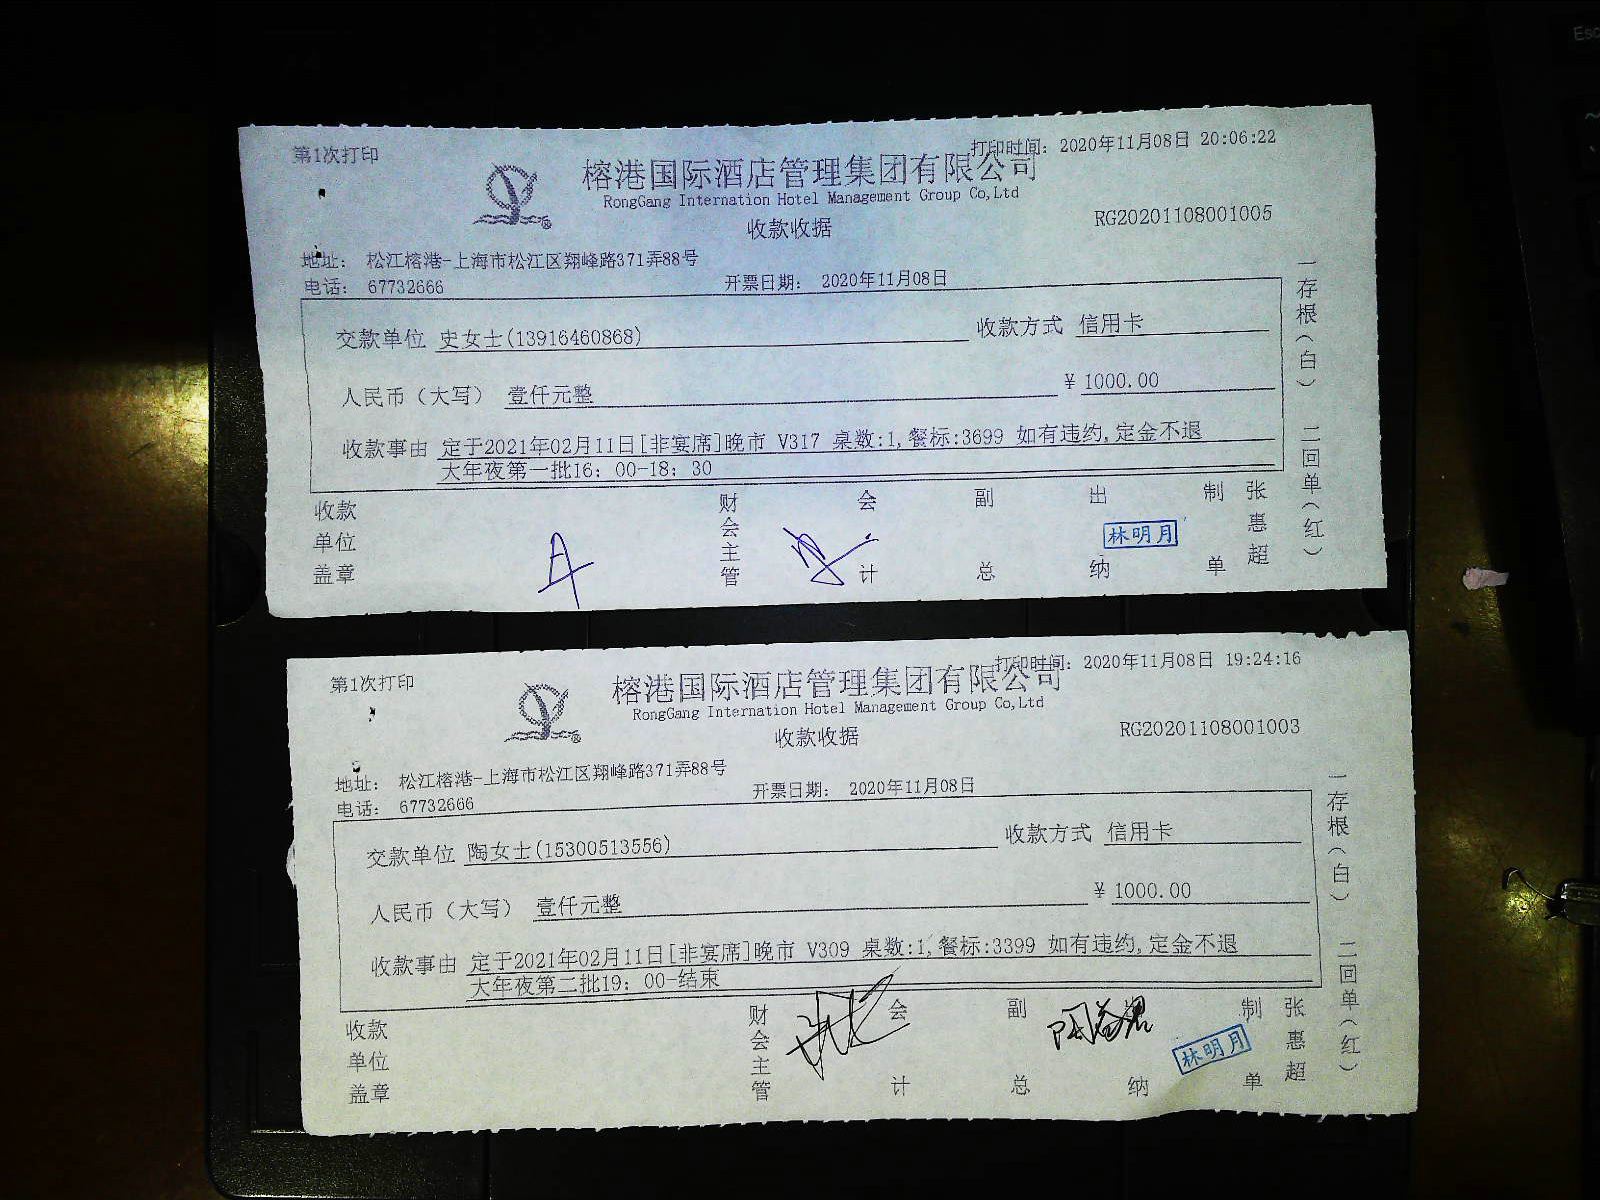 Esc
第1次打印
打印时间: 2020年11月08日 20:06:22
榕港国际酒店管理集团有限公司
RongGang Internation Hotel Management Group Co,Ltd
收款收据
RG20201108001005
地址: 松江榕港-上海市松江区翔峰路371弄88号
电话: 67732666
开票日期: 2020年11月08日
交款单位 史女士(13916460868)
收款方式 信用卡
人民币(大写) 壹仟元整
¥ 1000.00
收款事由 定于2021年02月11日[非宴席]晚市 V317 桌数:1,餐标:3699 如有违约,定金不退
大年夜第一批16: 00-18: 30
收款单位盖章
财会主管
会计
副总
出纳
林明月
制单
张惠超
一存根(白)
二回单(红)
第1次打印
打印时间: 2020年11月08日 19:24:16
榕港国际酒店管理集团有限公司
RongGang Internation Hotel Management Group Co,Ltd
收款收据
RG20201108001003
地址: 松江榕港-上海市松江区翔峰路371弄88号
电话: 67732666
开票日期: 2020年11月08日
交款单位 陶女士(15300513556)
收款方式 信用卡
人民币(大写) 壹仟元整
¥ 1000.00
收款事由 定于2021年02月11日[非宴席]晚市 V309 桌数:1,餐标:3399 如有违约,定金不退
大年夜第二批19: 00-结束
收款单位盖章
财会主管
会计
副总
出纳
林明月
制单
张惠超
一存根(白)
二回单(红)